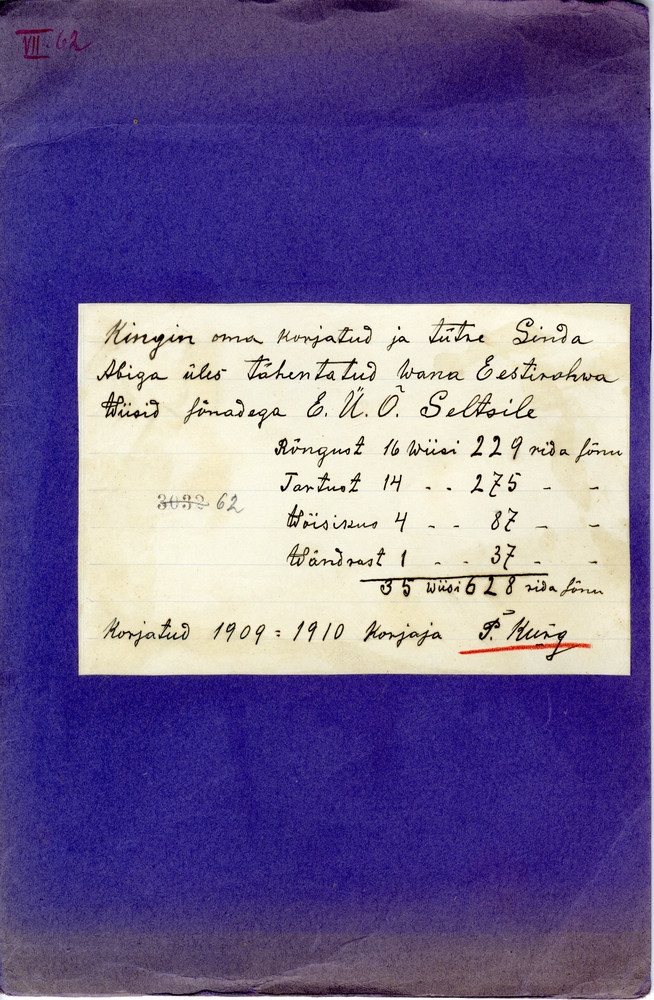 VII. 62
Kingin oma korjatud ja tütre Linda
Abiga üles tähentatud wana Eestirahwa
Wiisid sõnadega E. Ü. Õ. Seltsile
Rõngust 16 Wiisi 229 rida sõnu
Tartust 14 - - 275 - -
3032 62
Wõisikus 4 - - 87 - -
Wändrast 1 - - 37 - -
35 Wiisi 628 rida sõnu
Korjatud 1909 = 1910 Korjaja P. Kurg